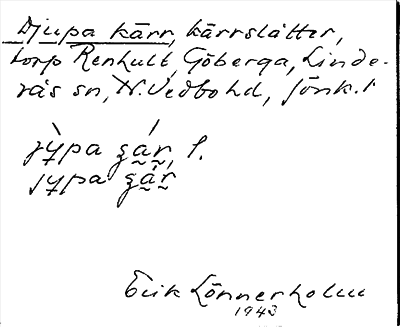 Djupa kärr, kärrslåtter,
torp Renhult, Göberga, Linde-
rås sn, N. Vedbo hd, Jönk. l
jy̠pa ʒa̰r̰, l.
jy̠pa ʒa̰r̰
Erik Lönnerholm
1943